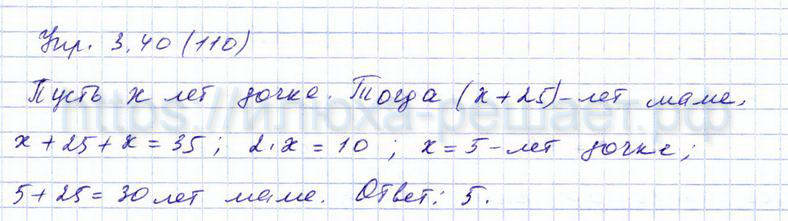 Упр. 3.40 (110)
Пусть x лет дочке. Тогда (x+25)-лет маме.
x+25+x=35; 2·x=10; x=5-лет дочке;
5+25=30 лет маме. Ответ: 5.
https://илюха-решает.рф